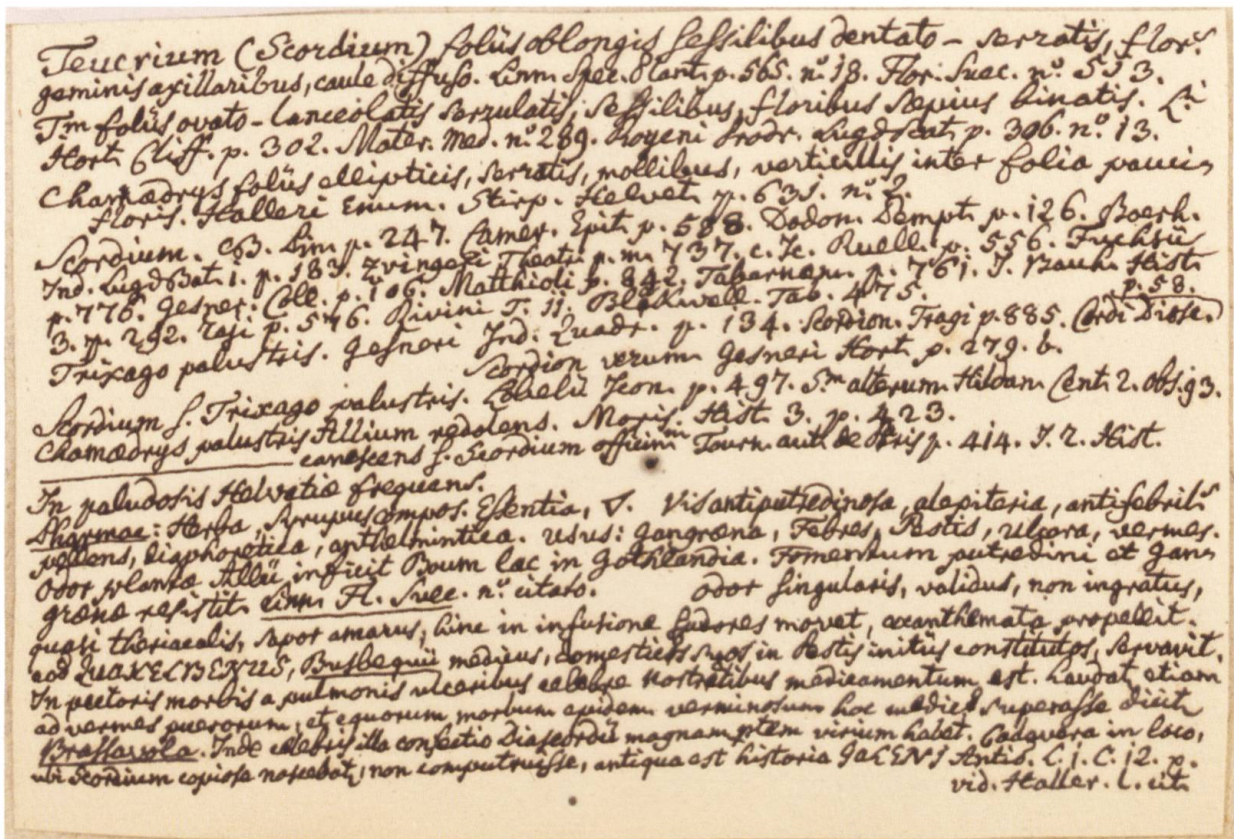 Teucrium (Scordium) foliis oblongis sessilibus dentato-serratis, flor.s
geminis axillaribus, caule diffuso. Linn. Spec. Plant. p. 565. n.o 18. Flor. Suec. n.o 513.
Tm foliis ovato-lanceolatis serrulatis, sessilibus, floribus saepius binatis. L.i
Hort. Cliff. p. 302. Mater. Med. n.o 289. Royeni Prodr. Lugdbat. p. 306. n.o 13.
Chamaedrys foliis ellipticis, serratis, mollibus, verticillis inter folia pauci-
floris. Halleri Enum. Stirp. Helvet. p. 631. n.o 2.
Scordium. CB. Pin. p. 247. Camer. Epit. p. 588. Dodon. Pempt. p. 126. Boerh.
Ind. LugdBat. 1. p. 183. Zvingeri Theatr. p. m. 737. c. Ic. Ruell. p. 556. Fuchsii
p. 776. Gesner. Coll. p. 106. Matthioli p. 842. Tabernaem. p. 761. J. Bauh. Hist.
3. p. 292. Raji p. 576. Rivini T. 11. Blakwell. Tab. 475. p. 58.
Trixago palustris. Gesneri Ind. Quadr. p. 134. Scordion. Tragi p. 885. Cordi Diosc.
Scordion verum Gesneri Hort. p. 279. b.
Scordium s. Trixago palustris. Lobelii Icon. p. 497. S.m alterum. Hildan. Cent. 2. Obs. 93.
Chamaedrys palustris Allium redolens. Moris. Hist. 3. p. 423.
canescens s. Scordium officin. Tourn. auth. de Pris p. 414. T. 2. Hist.
In paludosis Helvetiae frequens.
Pharmac: Herba, Syrupus compos. Essentia, Vis antiputredinosa, alexiteria, antifebrilis
pellens, diaphoretica, anthelmintica. Usus: Gangraena, Febres, Pestis, Ulcera, vermes.
Odor plantae Allii inficit Boum lac in Gothlandia. Fomentum putredini et Gan-
graenae resistit. Linn. Fl. Suec. n.o citato. Odor singularis, validus, non ingratus,
quasi theriacalis, sapor amarus, hinc in infusione sudores movet, exanthemata propellit.
eod QUAKELBENUS, Busbequii medicus, domesticos suos in Pestis initiis constitutos, servavit.
In pectoris morbis a pulmonis ulceribus celebre nostratibus medicamentum est. Laudat etiam
ad vermes puerorum, et equorum morbum epidem. verminosum hoc medic. superasse dicit
Brassavola. Inde celebris illa confectio Diascordii magnam ptem virium habet. Cadavera in loco,
ubi Scordium copiose nascebat, non computruisse, antiqua est historia GALENI Antid. L. 1. C. 12. p.
vid. Haller. l. cit.